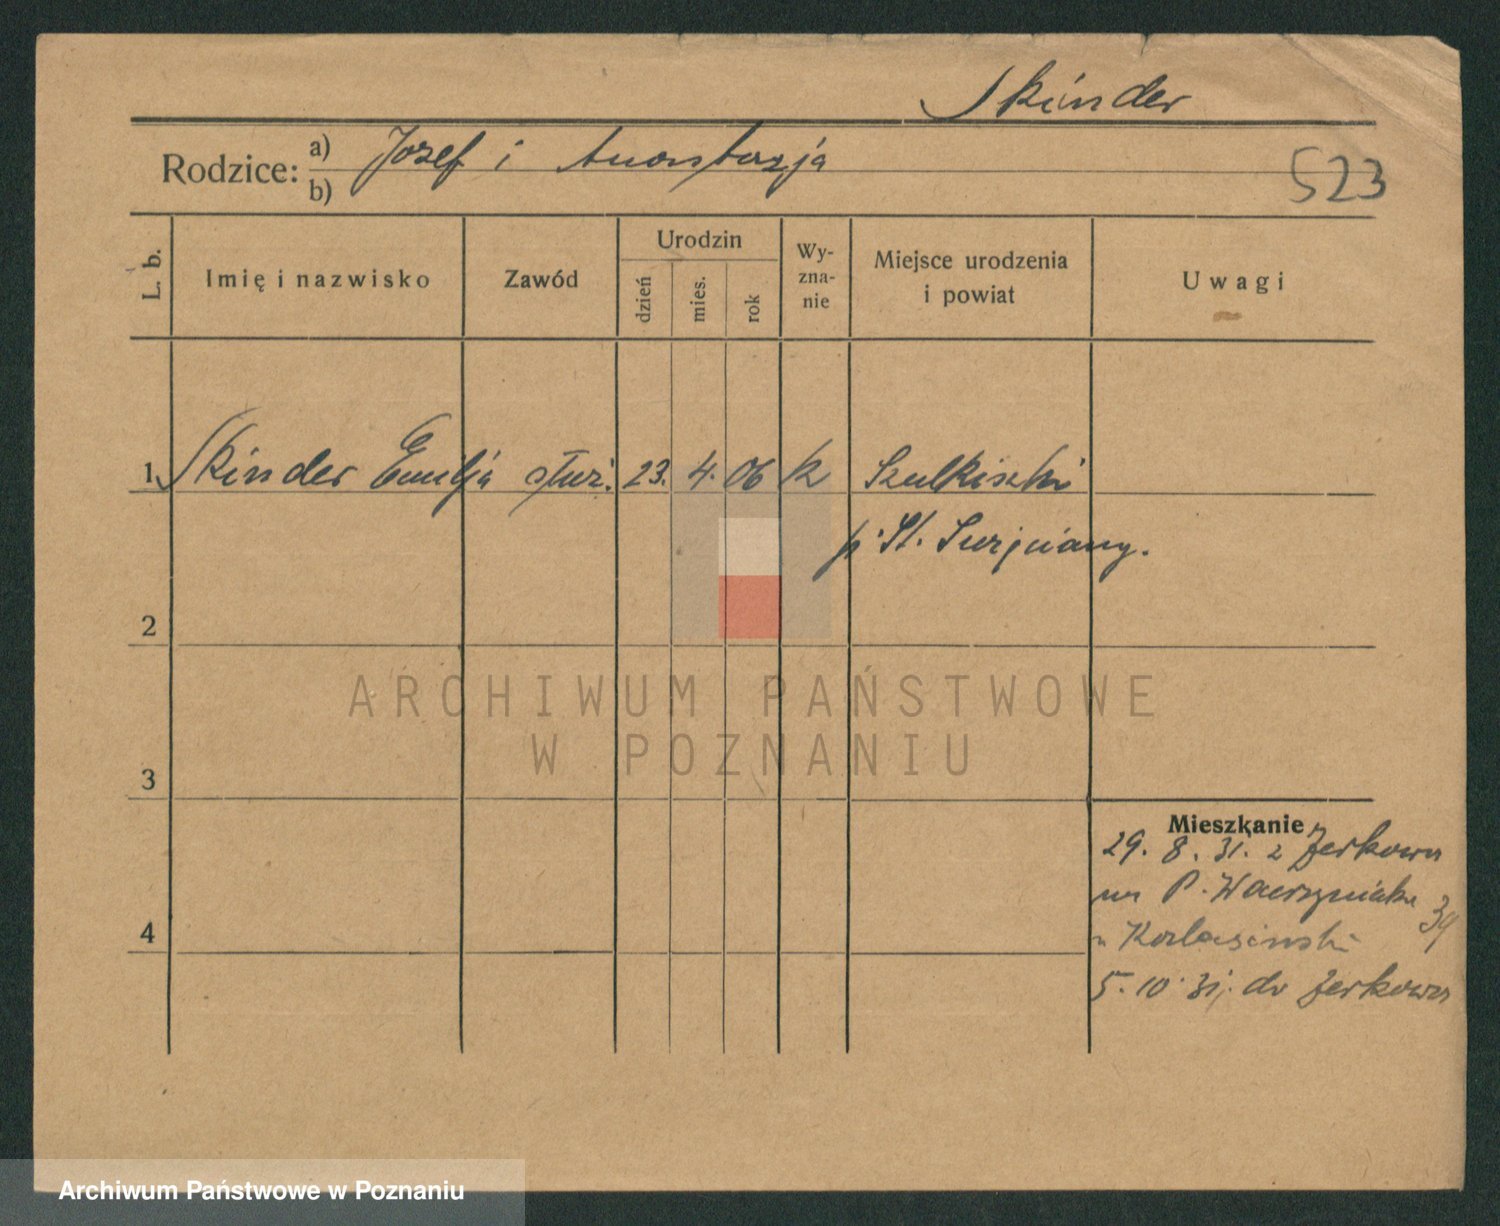 Skinder
Rodzice: a) Jozef i Anastazja
b)
523
L. b.
Imię i nazwisko
Zawód
Urodzin
dzień
mies.
rok
Wy-
zna-
nie
Miejsce urodzenia
i powiat
Uwagi
1 Skinder Emilja służ. 23. 4. 06 k Szulkiszki
p. St.
2
3
4
Mieszkanie
29. 8. 31. z Żerkowa
P. Wawrzyniaka 39
5. 10. 31. do Żerkowa
ARCHIWUM PAŃSTWOWE
W POZNANIU
Archiwum Państwowe w Poznaniu